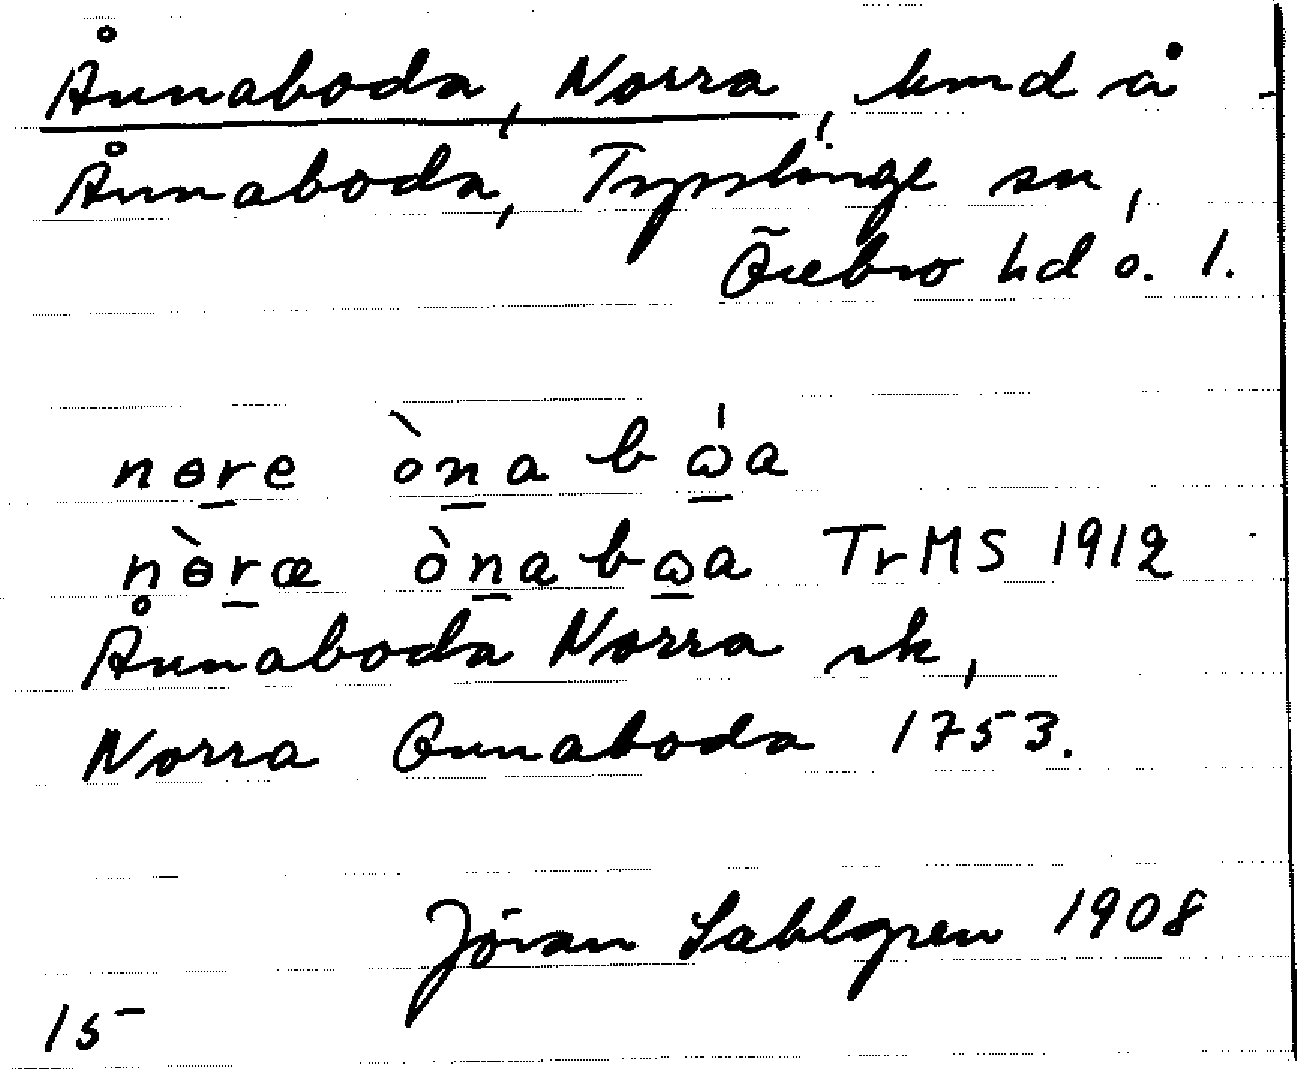 Ånnaboda, Norra, hmd å
Ånnaboda, Tysslinge sn,
Örebro hd ö. l.
nɵre òna bω̍a
nɵ̀ræ ònabωa TrMS 1912
Ånnaboda Norra sk,
Norra Ånnaboda 1753.
Jöran Sahlgren 1908
15